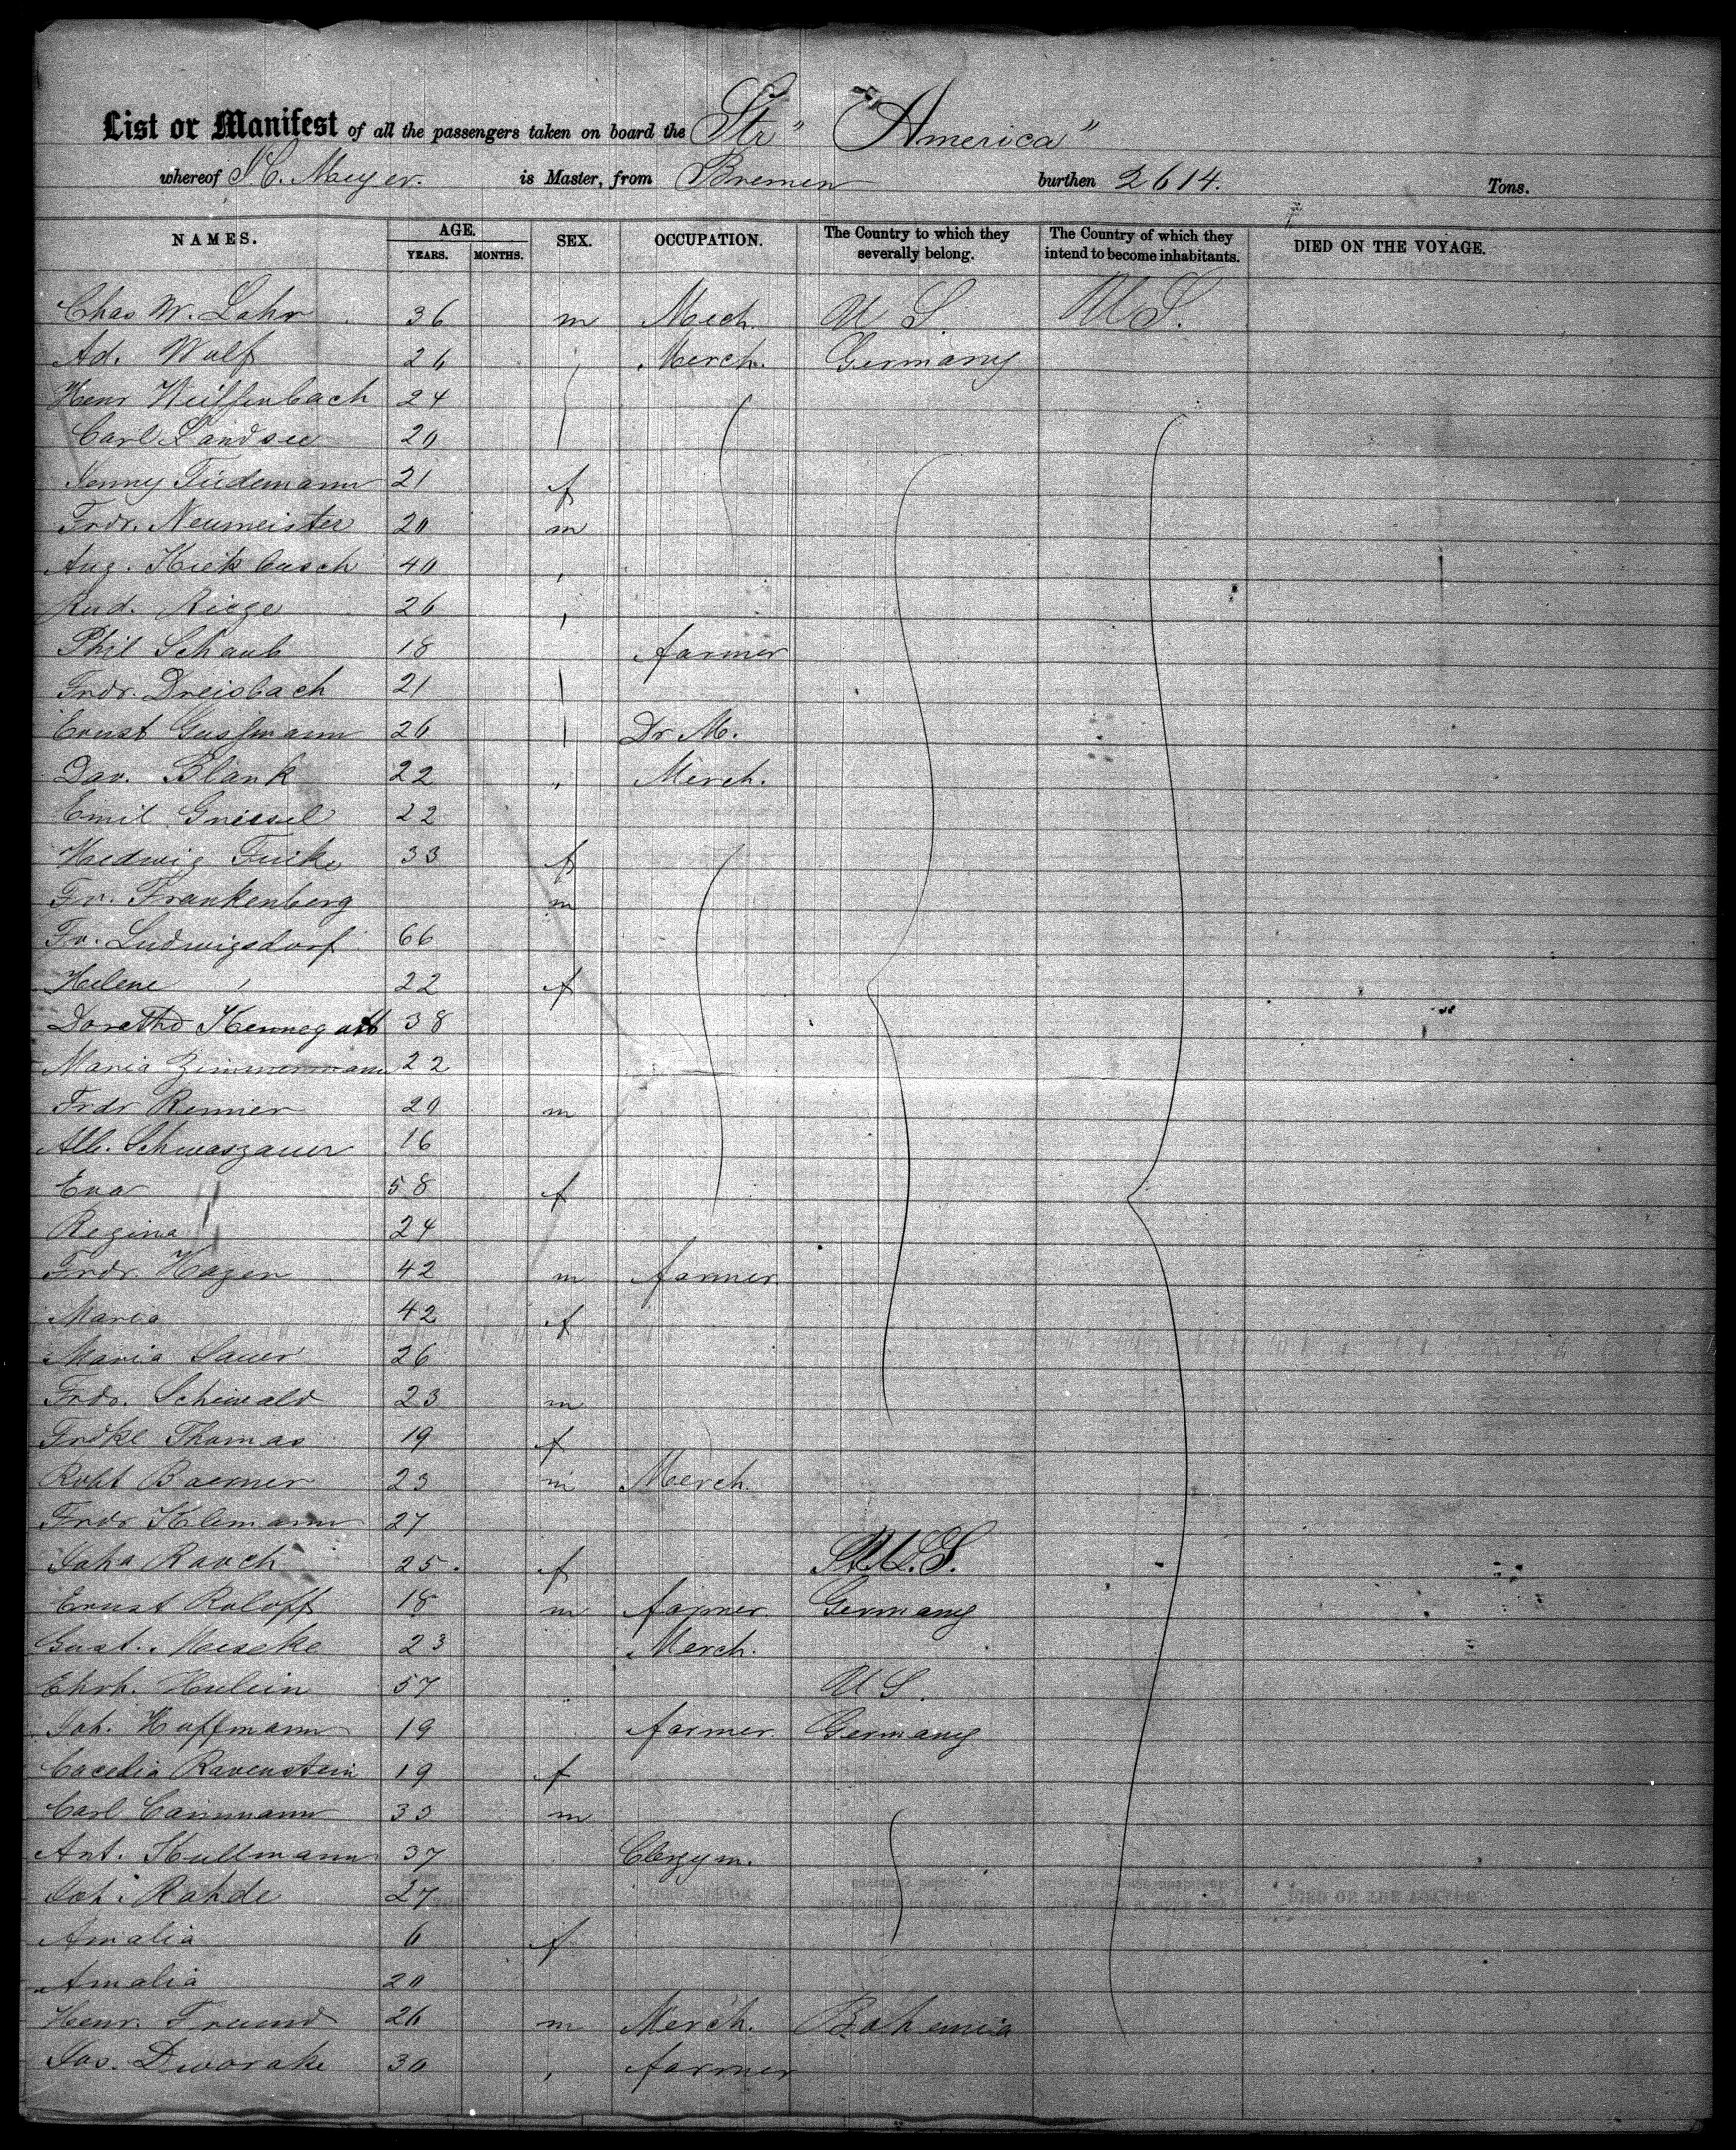 List or Manifest of all the passengers taken on board the Str " America "
whereof H. C. Meyer. is Master, from Bremen burthen 2614. Tons.
NAMES. AGE. SEX. OCCUPATION. The Country to which they severally belong. The Country of which they intend to become inhabitants. DIED ON THE VOYAGE.
YEARS. MONTHS.
Chas W. Lahr 36 m Mech. U S. U S.
Ad. Wolf 26 " Merch. Germany
Henr Weissenbach 24
Carl Landsee 20
Jenny Tiedemann 21 f
Frdr. Neumeister 20 m
Aug. Kiekbusch 40 "
Rud. Riege 26 "
Phil Schaub 18 farmer
Frdr. Dreisbach 21
Ernst Gussmann 26 Dr M.
Dav. Blank 22 " Merch.
Emil Griesel 22
Hedwig Fricke 33 f
Fr. Frankenberg m
Fr. Ludwigsdorf 66
Helene " 22 f
Doretha 38
Maria Zimmermann 22
Frdr Renner 20 m
Alb. Schwaszauer 16
Eva " 58 f
Regina " 24
Frdr. Hagen 42 m farmer
Maria 42 f
Maria Sauer 26
Frdr. Schiewald 23 m
Frdke Thomas 19 f
Robt Baerner 23 m Merch.
Frdr Klemann 27
Joha Rauch 25. f U.S.
Ernst Roloff 18 m farmer. Germany
Gust. Mescke 23 Merch.
Ehrh. Hulein 57 U S.
Joh. Hoffmann 19 farmer. Germany
Cacelia Ravenstein 19 f
Carl Cammann 33 m
Ant. Kullmann 37 Clergym.
Joh. Rohde 27
Amalia 6 f
Amalia 20
Henr. Freund 26 m Merch. Bohemia
Jos. Dworake 30 " farmer